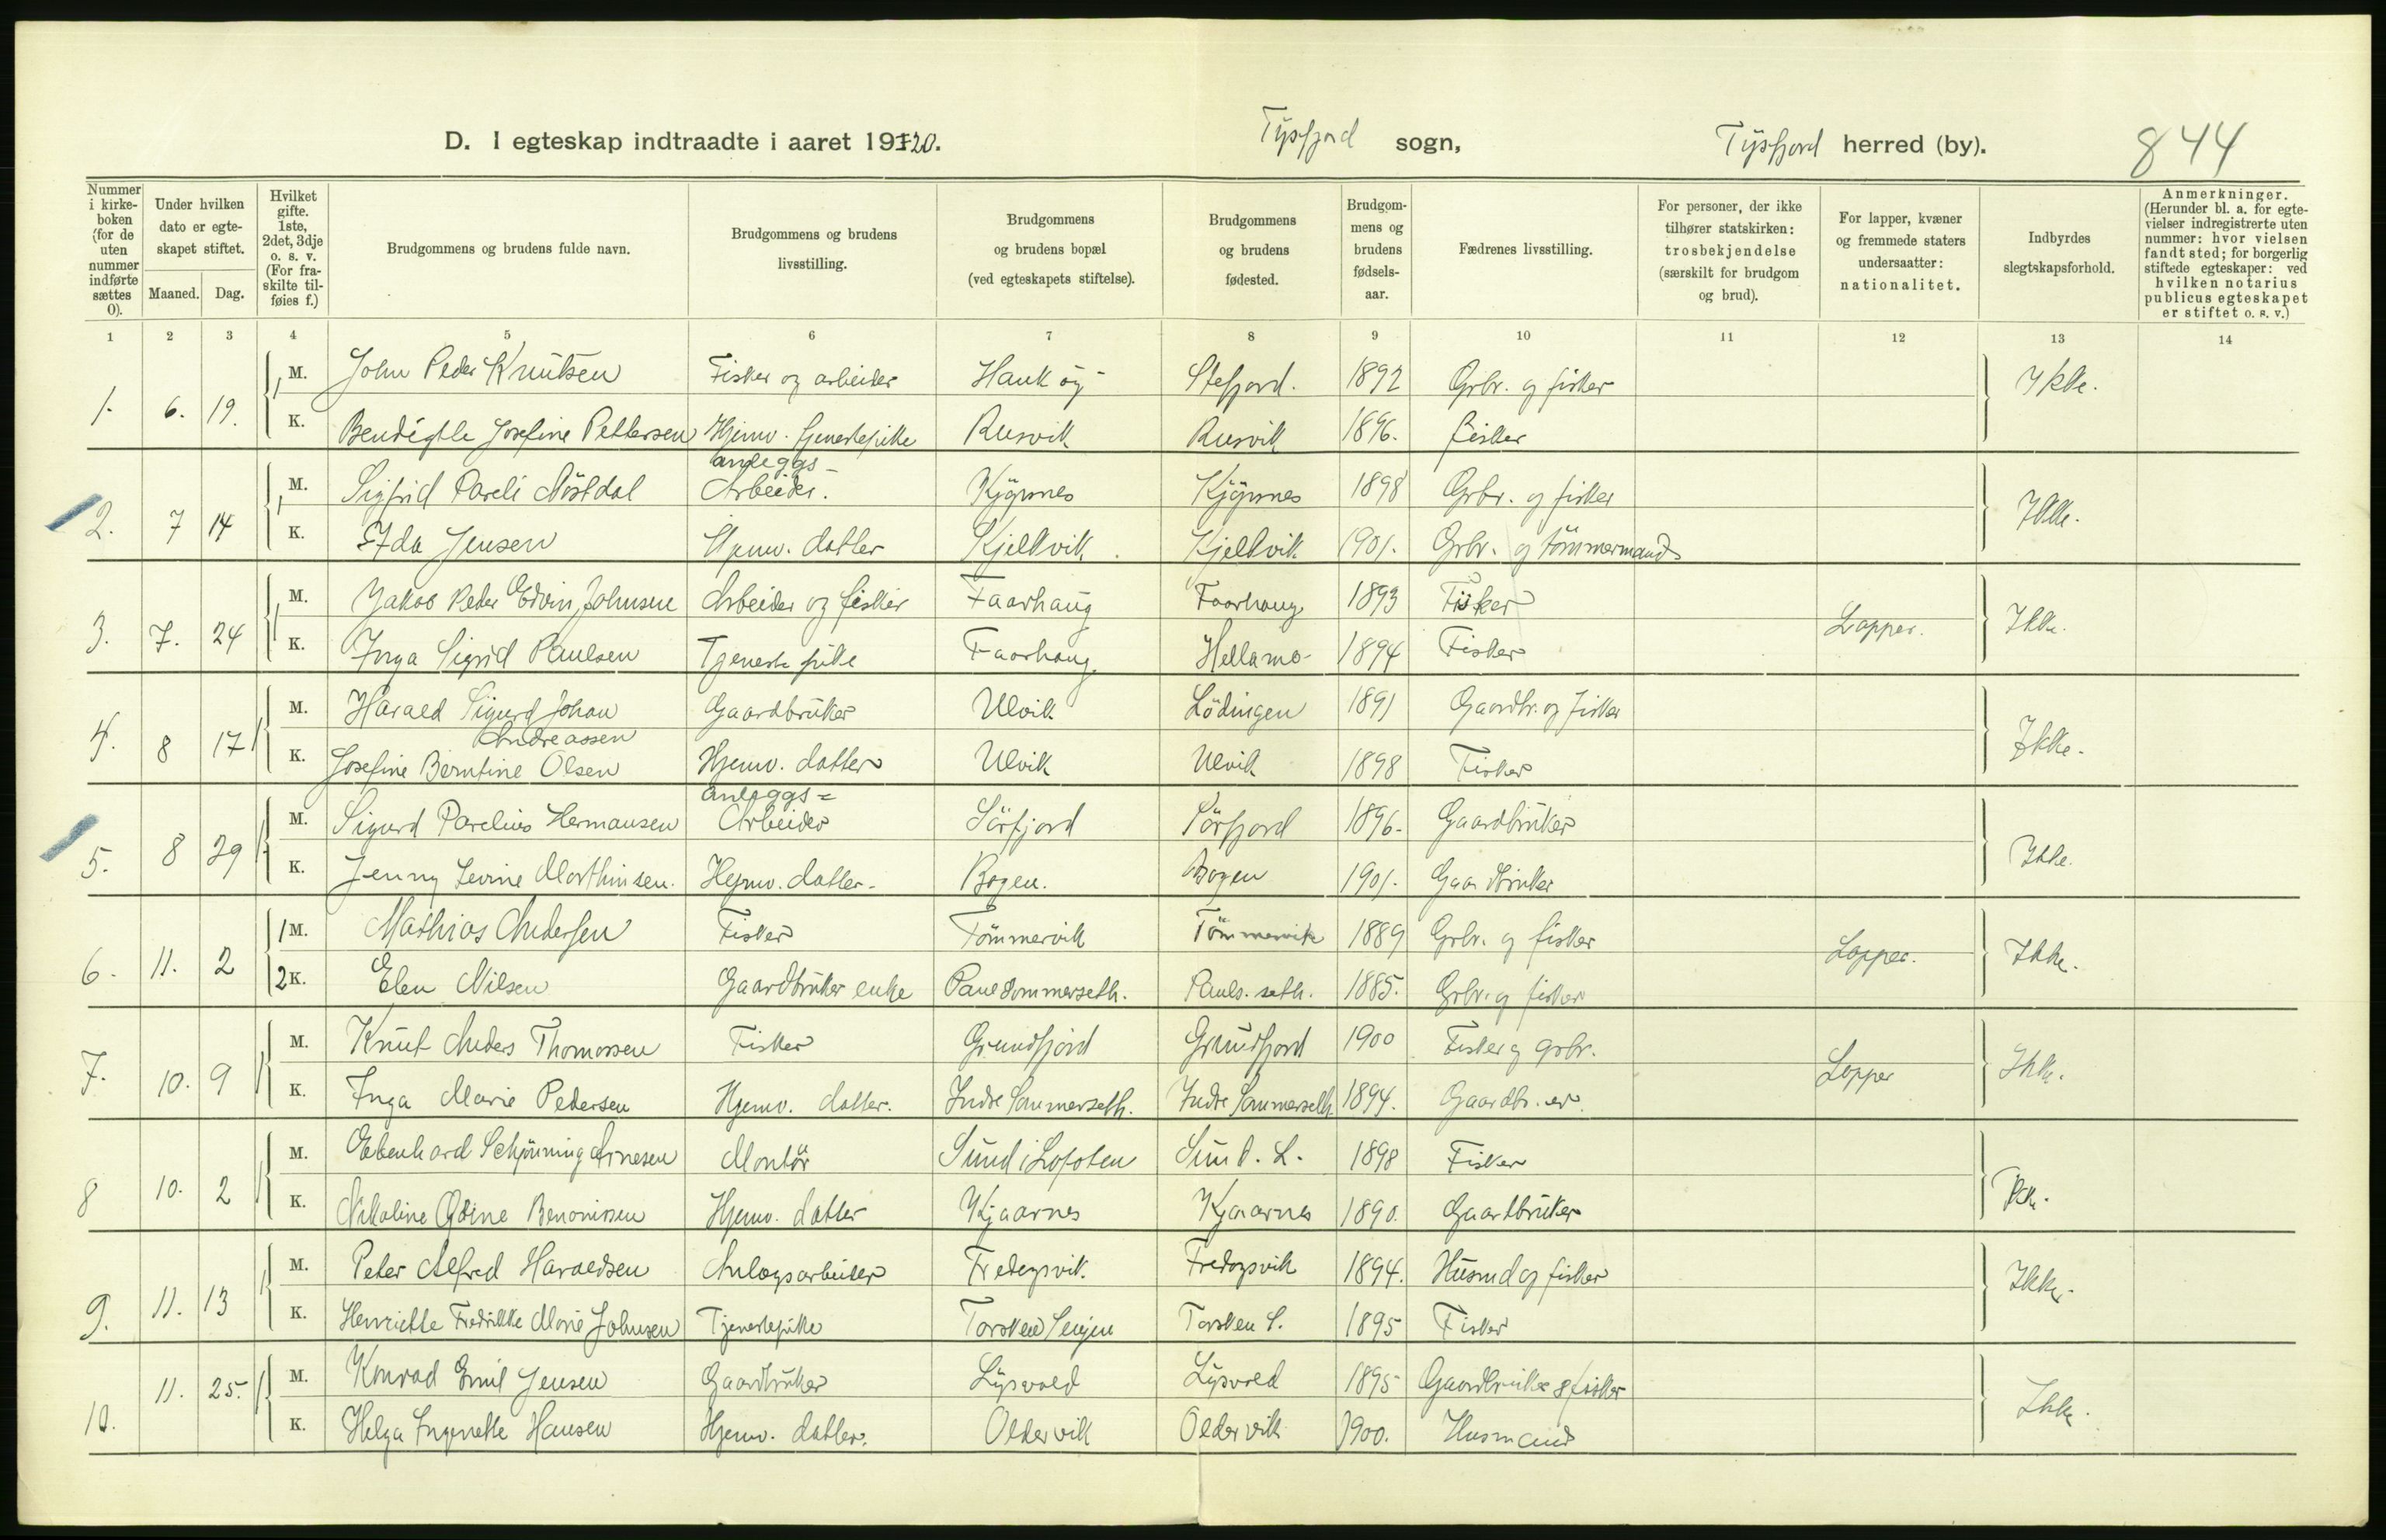 D. I egteskap indtraadte i aaret 1920. Tysfjord sogn, Tysfjord herred (by). 844
Nummer i kirke-boken (for de uten nummer indførte sættes 0).
Under hvilken dato er egte-skapet stiftet.
Maaned. Dag.
Hvilket gifte. 1ste, 2det, 3dje o. s. v. (For fra-skilte til-føies f.)
Brudgommens og brudens fulde navn.
Brudgommens og brudens livsstilling.
Brudgommens og brudens bopæl (ved egteskapets stiftelse).
Brudgommens og brudens fødested.
Brudgom-mens og brudens fødsels-aar.
Fædrenes livsstilling.
For personer, der ikke tilhører statskirken: trosbekjendelse (særskilt for brudgom og brud).
For lapper, kvæner og fremmede staters undersaatter: nationalitet.
Indbyrdes slegtskapsforhold.
Anmerkninger. (Herunder bl. a. for egte-vielser indregistrerte uten nummer: hvor vielsen fandt sted; for borgerlig stiftede egteskaper: ved hvilken notarius publicus egteskapet er stiftet o. s. v.)
1 2 3 4 5 6 7 8 9 10 11 12 13 14
1. 6. 19. 1 M. John Peder Knutsen Fisker og arbeider Haukøy Stefjord. 1892 Grbr. og fisker Ikke.
K. Bendigtte Josefine Pettersen Hjemv. tjenestepike Rusvik Rusvik 1896. fisker
2. 7 14 1 M. Sigfrid Pareli Nöstdal anleggs-Arbeider. Kjöpsnes Kjöpsnes 1898 Grbr. og fisker Ikke.
K. Ida Jensen Hjemv. datter Kjelkvik. Kjelkvik 1901. Grbr. og tömmermand
3. 7. 24 1 M. Jakob Peder Edvin Johnsen Arbeider og fisker Faarhaug Faarhaug 1893 Fisker Lapper. Ikke.
K. Inga Sigrid Paulsen Tjenestepike Faarhaug. Hellamo 1894 Fisker
4. 8 17 1 M. Harald Sigurd Johan Andreassen Gaardbruker Ulvik Lödingen 1891 Gaardbr. og fisker Ikke.
K. Josefine Berntine Olsen Hjemv. datter Ulvik Ulvik 1898 Fisker
5. 8 29 1 M. Sigurd Parelius Hermansen anleggs=Arbeider Sörfjord Sörfjord 1896. Gaardbruker Ikke.
K. Jenny Levine Marthinsen. Hjemv. datter. Bogen. Bogen 1901. Gaardbruker
6. 11. 2 1 M. Mathias Andersen Fisker Tömmervik Tömmervik 1889 Grbr. og fisker Lapper. Ikke.
2 K. Elen Nilsen Gaardbruker enke Paulsommerseth. Pauls.seth. 1885. Grbr. og fisker
7. 10. 9 1 M. Knut Anders Thomassen Fisker Grundfjord Grundfjord 1900 Fisker og grbr. Lapper Ikke.
K. Inga Marie Pedersen Hjemv. datter. Indre Sommerseth. Indre Sommerseth. 1894. Gaardbr.er.
8 10. 2 1 M. Edenhard Schjönning Arnesen Montör Sund i Lofoten Sund. L. 1898 Fisker Ikke.
K. Nikoline Odine Benonissen Hjemv. datter Kjaarnes Kjaarnes 1890. Gaardbruker
9. 11. 13 1 M. Peter Alfred Haraldsen Anlegsarbeider Fredagsvik. Fredagsvik 1894. Husmd og fisker Ikke.
K. Henriette Fredrikke Marie Johnsen Tjenestepike Torsken Senjen Torsken S. 1895 Fisker
10. 11. 25. 1 M. Konrad Emil Jensen Gaardbruker Lysvold Lysvold 1895 Gaardbruker & fisker Ikke.
K. Helga Ingenette Hansen Hjemv. datter. Oldervik Oldervik 1900. Husmand